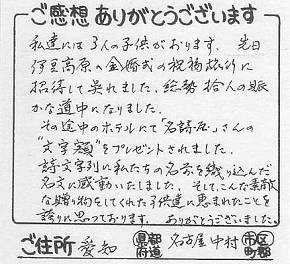 ご感想ありがとうございます
私達には3人の子供がおります。先日
伊豆高原の金婚式の祝福旅行に
招待して呉れました。総勢拾人の賑
かな道中になりました。
その途中のホテルにて「名詩屋」さんの
"文字額"をプレゼントされました。
詩文字列に私たちの名前を織り込んだ
名文に感動いたしました。そして、こんな素敵
な贈り物をしてくれた子供達に恵まれたことを
誇りに思っております。ありがとうございました。
ご住所 愛知 都道府県 名古屋中村 市区町郡